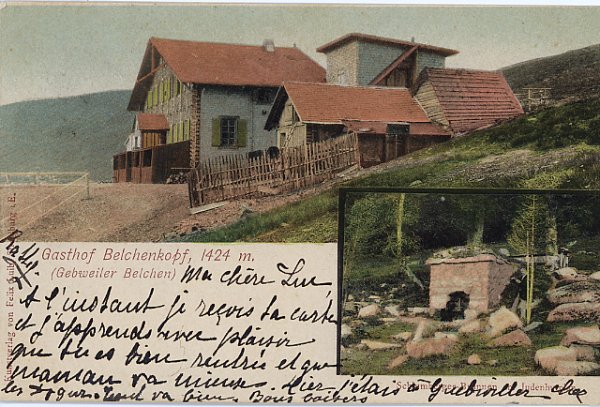 Gasthof Belchenkopf, 1424 m.
(Gebweiler Belchen)
Ma chère Luc
A l'instant je reçois ta carte
et j'apprends avec plaisir
que tu es bien rentrée et que
maman va mieux. Hier j'étais à Guebwiller chez
les tout va bien Bons baisers
Kunstverlag von Felix Luib, Strassburg i. E.
Brunnen Judenhut